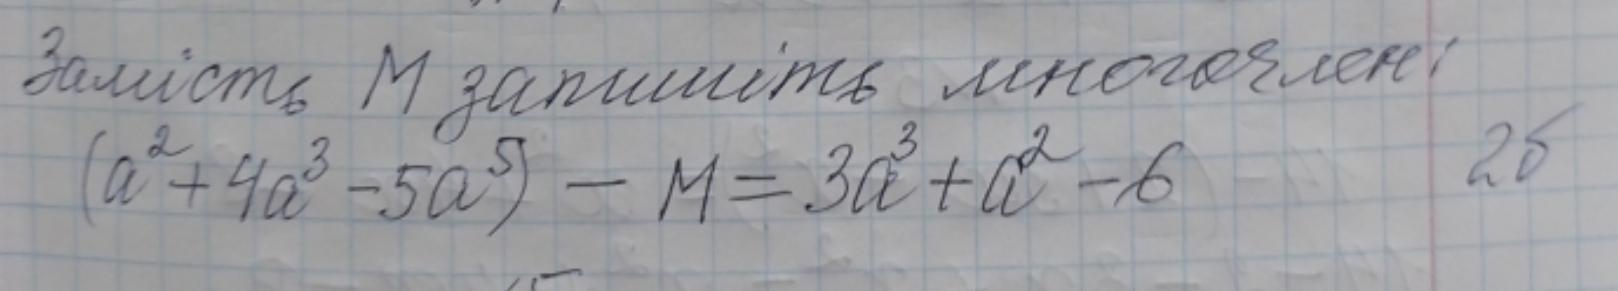 Замість М запишіть многочлен:
(a² + 4a³ - 5a⁵) - M = 3a³ + a² - 6 2б